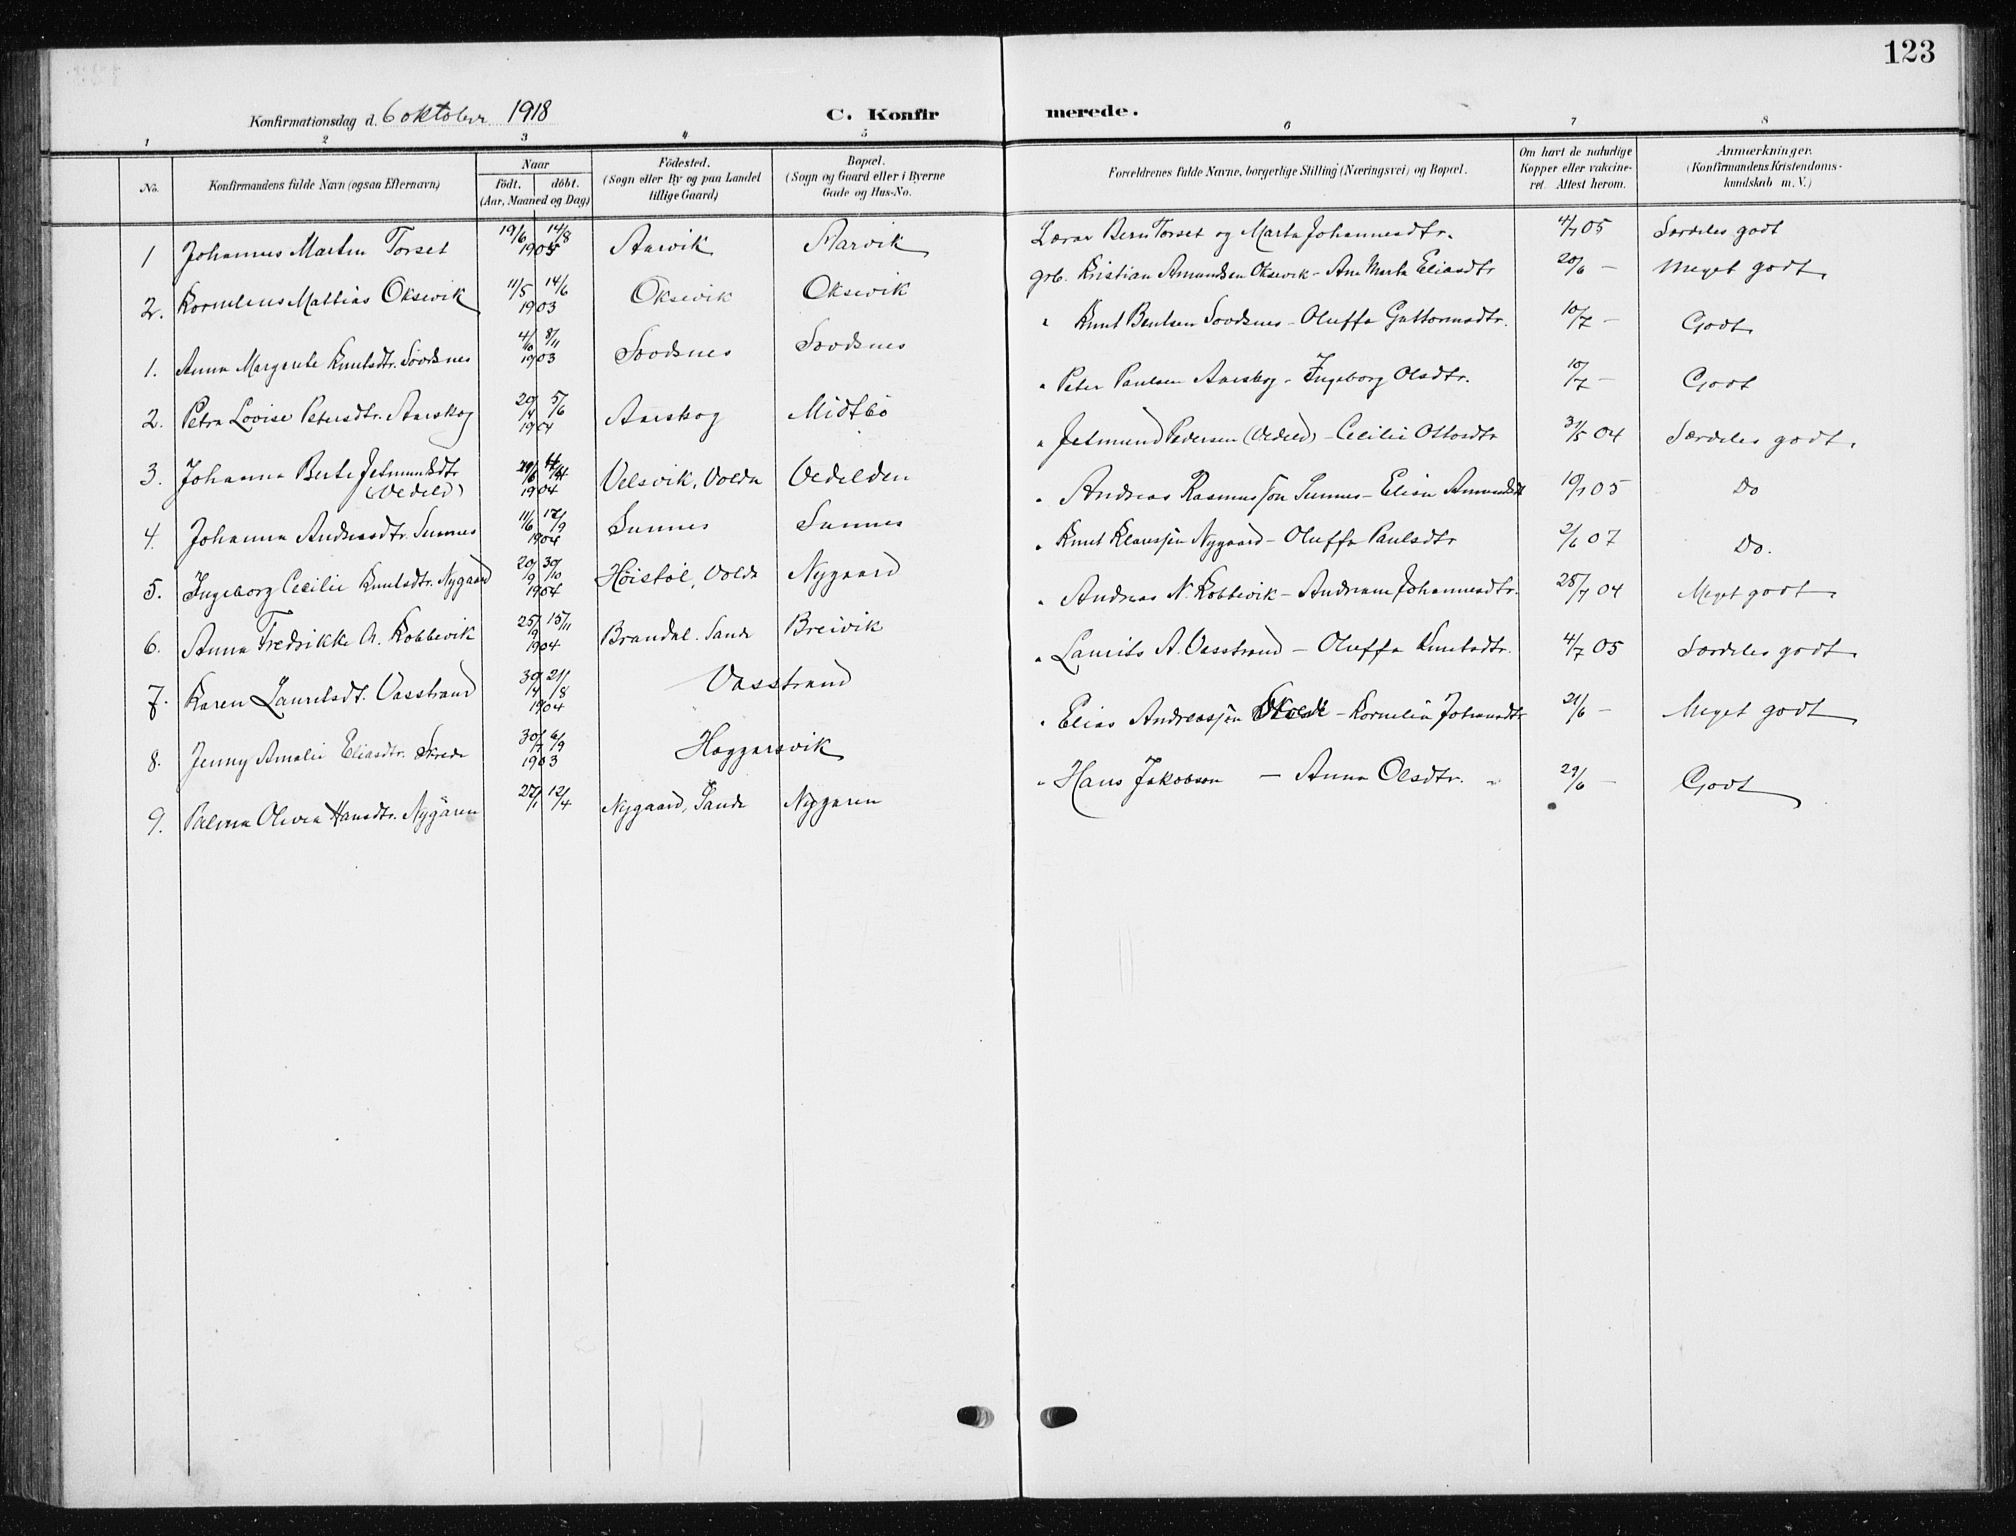 123
Konfirmationsdag d. 6 oktober 1918 C. Konfirmerede.
1 2 3 4 5 6 7 8
No. Konfirmandens fulde Navn (ogsaa Efternavn) Naar født. døbt. (Aar, Maaned og Dag) Fødested. (Sogn eller By og paa Landet tillige Gaard) Bopæl. (Sogn og Gaard eller i Byerne Gade og Hus-No. Forældrenes fulde Navne, borgerlige Stilling (Næringsvei) og Bopæl. Om havt de naturlige Kopper eller vakcineret. Attest herom. Anmærkninger. (Konfirmandens Kristendomskundskab m. V.)
1 Johannes Martin Torset 19/6 14/8 Aarvik Aarvik Lærar Bern Torset og Marta Johannesdtr. 4/7 05 Særdeles godt
2. Kornelius Mattias Oksevik 11/5 14/6 1903 Oksevik Oksevik grb. Kristian Amundsen Oksevik - Ane Marta Eliasdtr 20/6 — Meget godt
1. Anna Margrete Knutsdtr. Sordsnes 4/10 8/11 1903 Sordsnes Sordsnes " Knut Bentsen Sordsnes - Oluffa Guttormsdtr. 10/7 — Godt
2. Petra Lovise Petersdtr. Aarskog 20/4 5/6 1904 Aarskog Midtbø " Peter Paulsen Aarskog - Ingeborg Olsdtr. 10/7 — Godt
3. Johanna Berte Jetmundsdtr (Vedeld) 1904 Velsvik, Volda Vedelden " Jetmund Pedersen (Vedeld) - Cecilie Ottosdtr 31/5 04 Særdeles godt
4. Johanna Andreasdtr. Sunnes 11/6 1904 Sunnes Sunnes " Andreas Rasmusson Sunnes - Elisa Amundsdt 19/7 05 Do
5. Ingeborg Cecilie Knutsdtr. Nygaard 20/9 30/10 1904 Høistøl, Volda Nygaard " Knut Klaussøn Nygaard - Oluffa Paulsdtr 2/6 07 Do.
6. Anna Fredrikke A. Kobbevik 25/9 15/11 1904 Brandal. Sande Breivik " Andreas N. Kobbevik - Andriane Johannesdtr. 28/7 04 Meget godt
7. Karen Lauritsdt. Vasstrand 30/4 21/8 1904 Vasstrand " Laurits A. Vasstrand - Oluffa Knutsdtr. 4/7 05 Særdeles godt
8. Jenny Amalie Eliasdtr. Skrede 30/7 6/9 1903 Hoggarsvik " Elias Andreassøn - Kornelia Johansdtr 21/6 — Meget godt
9. Palma Olivia Hansdtr. Nygåren 27/1 12/4 Nygaard, Sande Nygaren " Hans Jakobson - Anna Olsdtr. " 29/6 — Godt